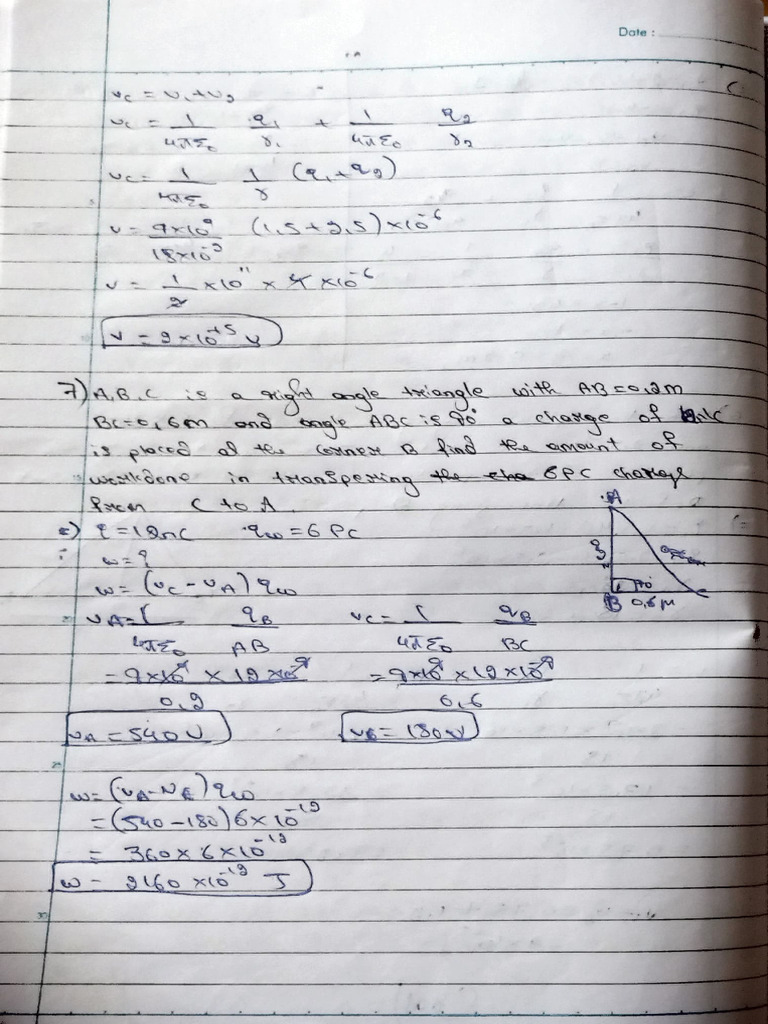 Date :
vc = v1+v2
vc = 1/4πε0 q1/r1 + 1/4πε0 q2/r2
vc = 1/4πε0 1/r (q1+q2)
v = 9×10^9/18×10^-2 (1,5+2,5)×10^-6
v = 1/2 ×10^11 × 4 ×10^-6
v = 2×10^+5 v
7) A,B,C is a right angle triangle with AB=0,2m
BC=0,6m and angle ABC is 90° a charge of
is placed at the corner B find the amount of
workdone in transfering the cha 6PC charge
from C to A.
q = 12nC qw = 6 PC
w = ?
w = (vc - vA) qw
vA = 1/4πε0 qB/AB vc = 1/4πε0 qB/BC
= 9×10^9 × 12×10^-9/0,2 = 9×10^9 × 12×10^-9/0,6
vA = 540 V vc = 180v
w = (vA - vc) qw
= (540-180) 6×10^-12
= 360×6×10^-12
w = 2160 ×10^-12 J
A
B 90° C
0,6 m